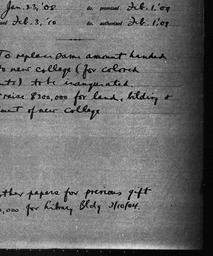 Jan. 23, '08 do. promised Feb. 1, '09
Feb. 3, '10 do. authorized Feb. 1, '09
To replace same amount handed
to new college (for colored
to be inaugurated
raise $200,000 for land, blding &
ment of new College
ther papers for previous gift
,000 for Library Bldg 3/10/04.